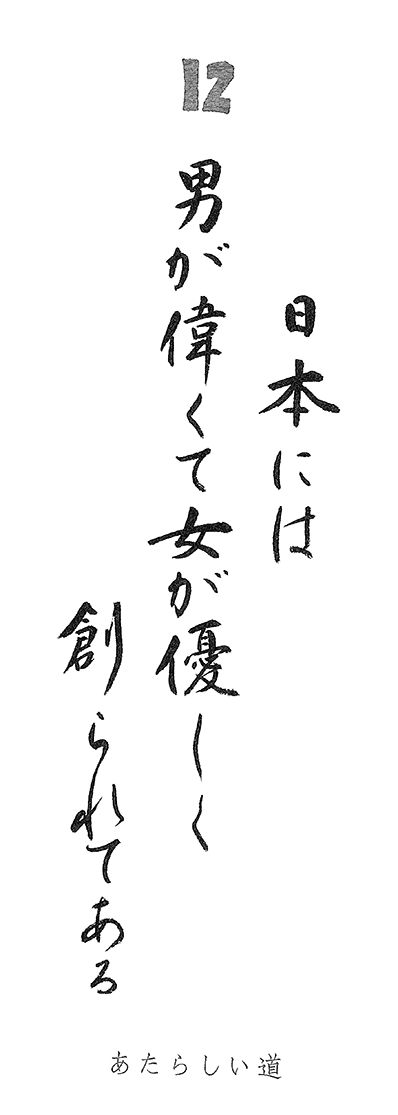 12
日本には
男が偉くて女が優しく
創られてある
あたらしい道